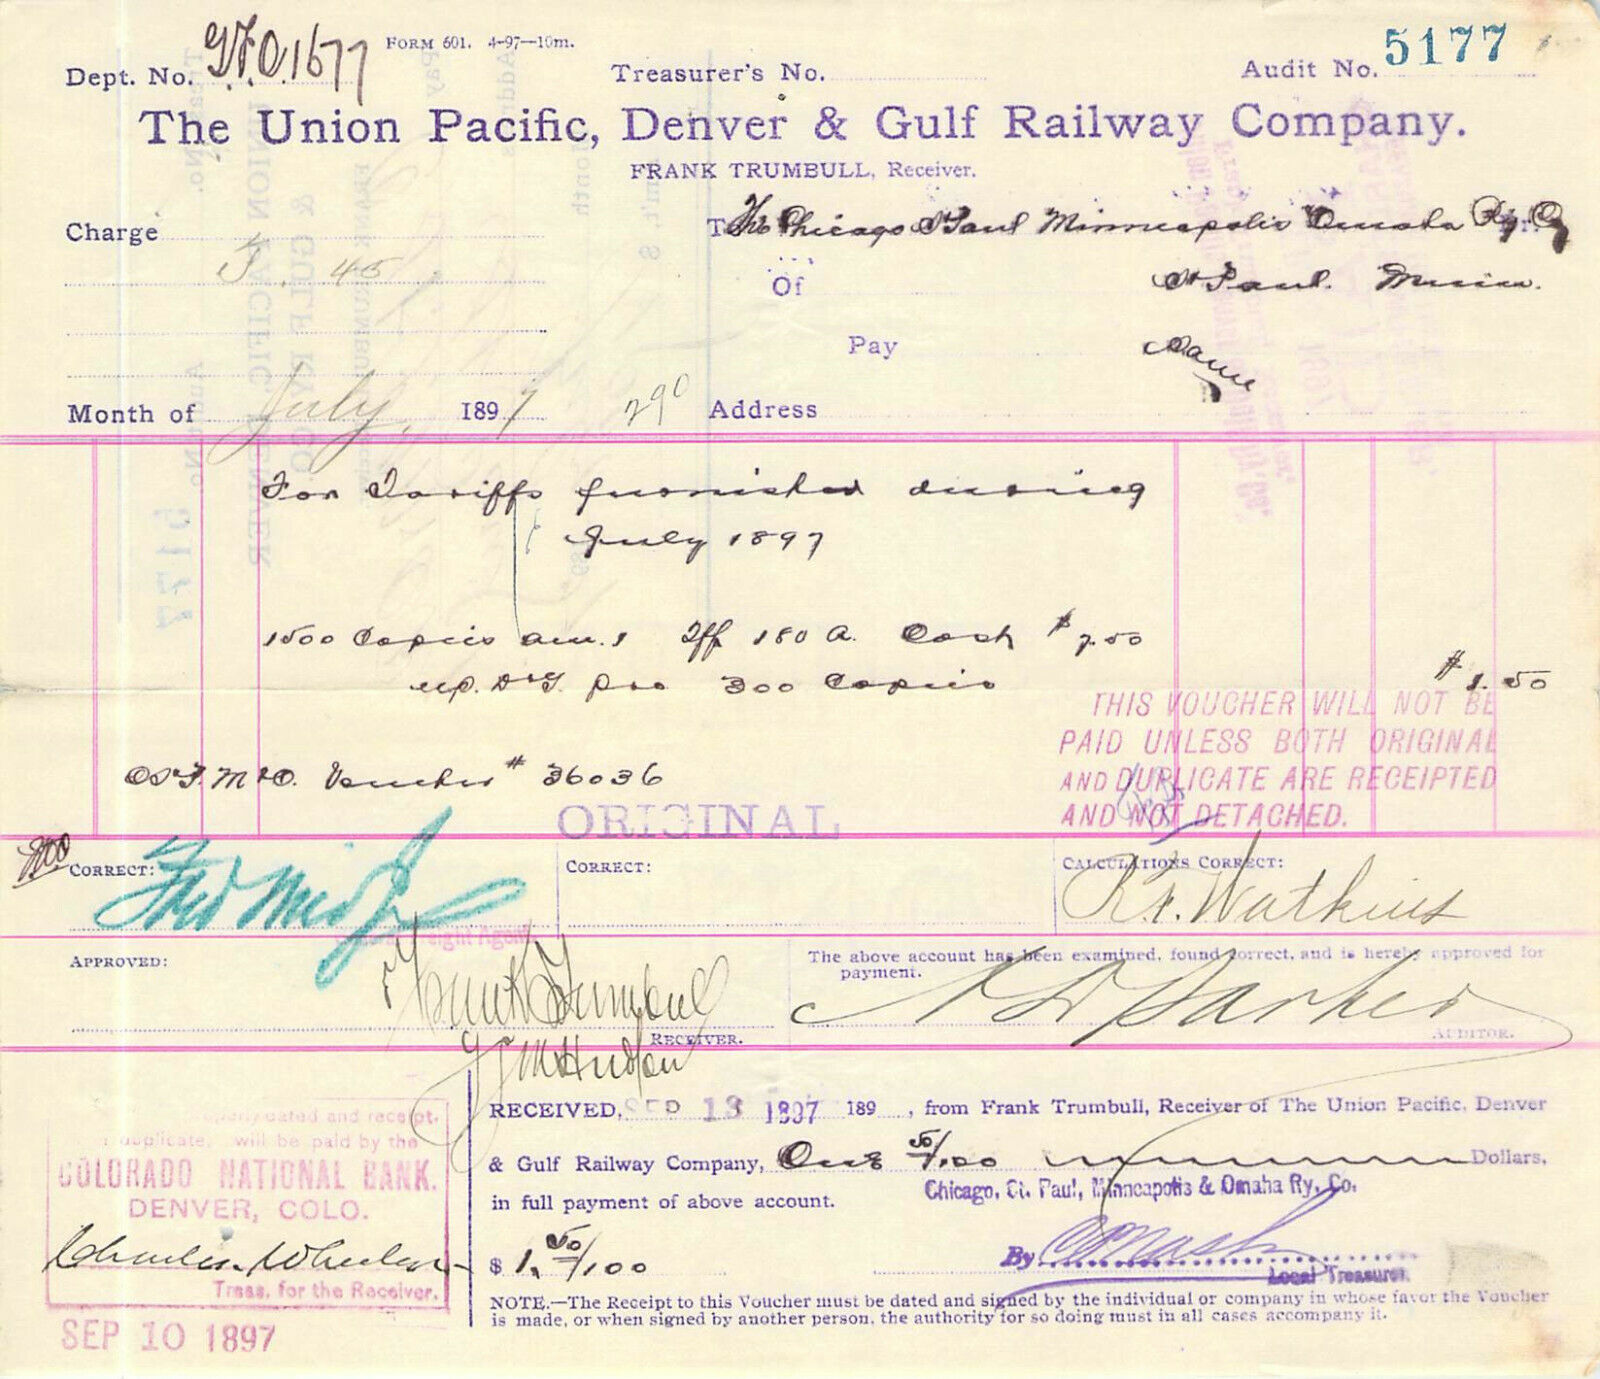 FORM 601. 4-97—10m.
Dept. No. G.F.O. 1677
Treasurer's No.
Audit No. 5177
The Union Pacific, Denver & Gulf Railway Company.
FRANK TRUMBULL, Receiver.
Charge
F. 45
To The Chicago St Paul Minneapolis Omaha Ry Co
Of St Paul. Minn.
Pay Same
Month of July, 1897
290
Address
For Tariffs furnished during
July 1897
1500 Copies am. 1 Tff 180 A. Cost $7.50
U.P. D&G. pro 300 Copies $1.50
CStP.M&O. Voucher # 36036
THIS VOUCHER WILL NOT BE
PAID UNLESS BOTH ORIGINAL
AND DUPLICATE ARE RECEIPTED
AND NOT DETACHED.
ORIGINAL
CORRECT:
CORRECT:
CALCULATIONS CORRECT:
Watkins
Freight Agent
APPROVED:
Frank Trumbull
RECEIVER.
The above account has been examined, found correct, and is hereby approved for
payment.
Parker
AUDITOR.
Hudson
RECEIVED, SEP 13 1897 189 , from Frank Trumbull, Receiver of The Union Pacific, Denver
& Gulf Railway Company, One 50/100 Dollars,
in full payment of above account.
Chicago, St. Paul, Minneapolis & Omaha Ry. Co.
$ 1. 50/100
By C P Nash
Local Treasurer.
NOTE.—The Receipt to this Voucher must be dated and signed by the individual or company in whose favor the Voucher
is made, or when signed by another person, the authority for so doing must in all cases accompany it.
properly dated and receipt.
duplicate, will be paid by the
COLORADO NATIONAL BANK.
DENVER, COLO.
Charles Wheeler
Treas. for the Receiver.
SEP 10 1897